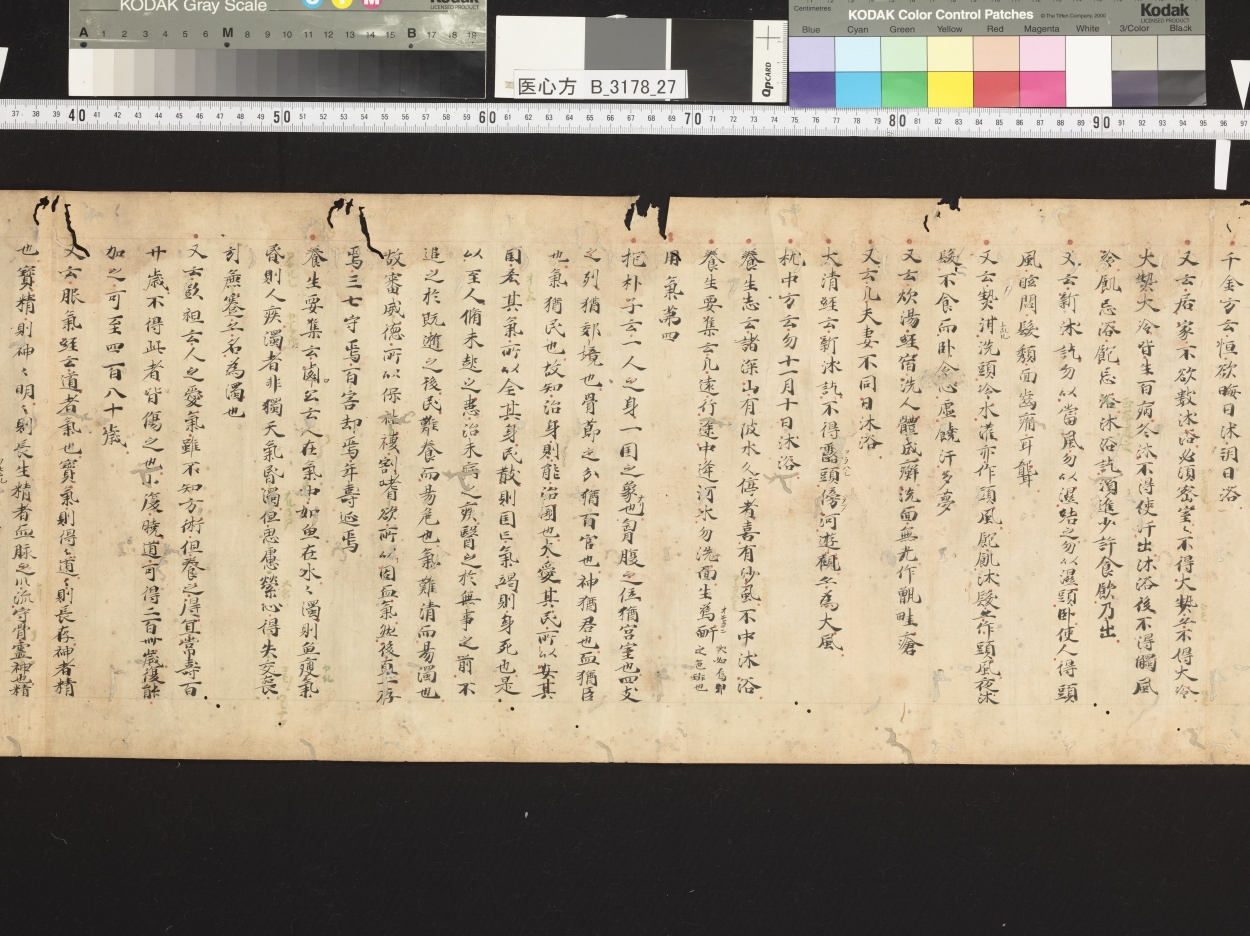 KODAK Gray Scale
Kodak
LICENSED PRODUCT
A 1 2 3 4 5 6 M 8 9 10 11 12 13 14 15 B 17 18 19
C Y M
医心方 B_3178_27
QPCARD
Centimetres
KODAK Color Control Patches
© The Tiffen Company, 2000
Kodak
LICENSED PRODUCT
Blue Cyan Green Yellow Red Magenta White 3/Color Black
37 38 39 40 41 42 43 44 45 46 47 48 49 50 51 52 53 54 55 56 57 58 59 60 61 62 63 64 65 66 67 68 69 70 71 72 73 74 75 76 77 78 79 80 81 82 83 84 85 86 87 88 89 90 91 92 93 94 95 96 97
千金方云恒欲晦日沐朔日浴
又云居家不欲數沐浴必須密室不得大熱亦不得大冷
大熱大冷皆生百病冬沐不得使汗出沐浴後不得觸風
冷飢忌浴飽忌沐浴訖須進少許食飲乃出
又云新沐訖勿以當風勿以濕結之勿以濕頭卧使人得頭
風眩悶髮頹面齒痛耳聾
又云熱泔洗頭冷水灌亦作頭風飽飢沐髮亦作頭風夜沐
髮不食而卧令心虛饒汗多夢
又云炊湯經宿洗人體成癬洗面無光作甑畦瘡
又云凡夫妻不同日沐浴
大清經云新沐訖不得露頭傍河遊觀必為大風
枕中方云勿十一月十日沐浴
養生志云諸深山有陂水久停者喜有沙風不中沐浴
養生要集云凡遠行途中逢河水勿洗面生烏皯
用氣第四
抱朴子云一人之身一國之象也胷腹之位猶宮室也四支
之列猶郊境也骨節之分猶百官也神猶君也血猶臣
也氣猶民也故知治身則能治國也夫愛其民所以安其
国恡其氣所以全其身民散則国亡氣竭則身死也是
以至人脩未起之患治未病之疾醫之於無事之前不
追之於既逝之後民難養而易危也氣難清而易濁也
故審威德所以保社稷割嗜欲所以固血氣然後真一存
焉三七守焉百害却焉年壽延焉
養生要集云 公云人在氣中如魚在水々濁則魚瘦氣
昏則人疾濁者非獨天氣昏濁但思慮縈心得失交喪
引無蹇之名為濁也
又云彭祖云人之愛氣雖不知方術但養之得宜常壽百
廿歲不得此者皆傷之也小復曉道可得二百卌歲復能
加之可至四百八十歲
又云服氣經云道者氣也寶氣則得々道々則長存神者精
也寶精則神々明々則長生精者血脉之川流守骨靈神也精